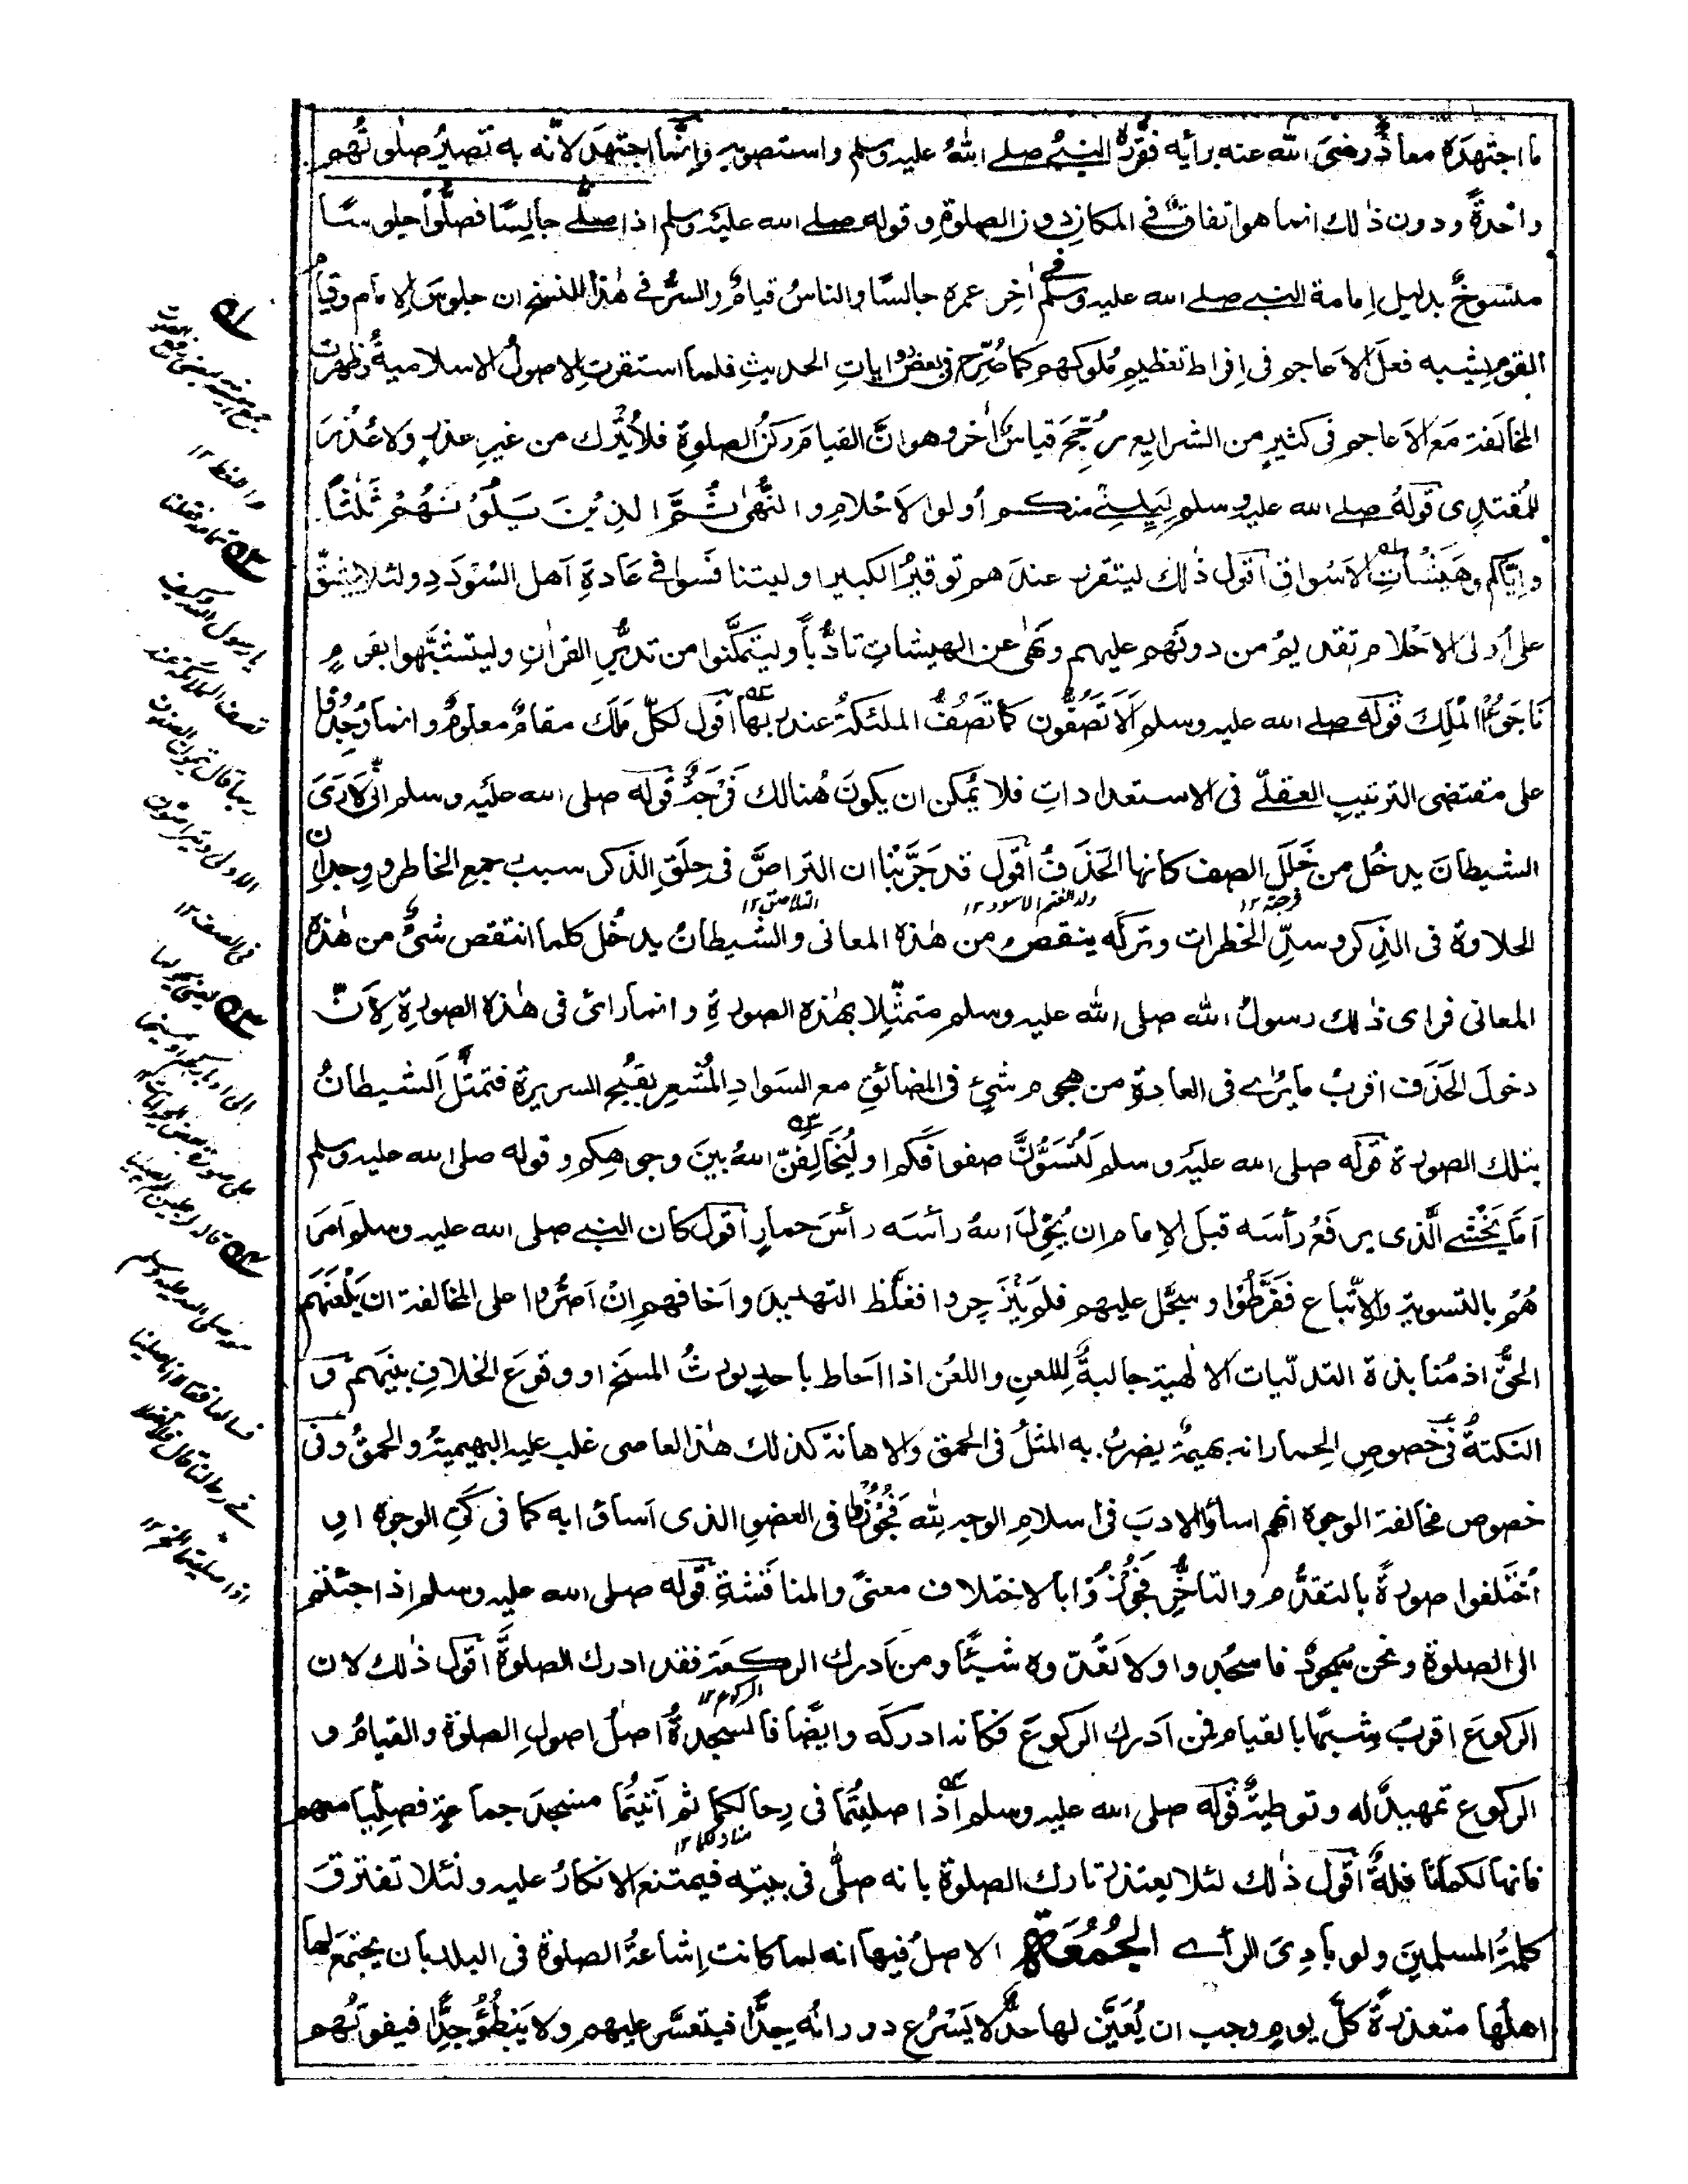 ما اجتهده معاذ رضى الله عنه برأيه فقرره النبى صلى الله عليه وسلم واستصوبه وانما اجتهد لانه به تصير صلوتهم
واحدةً ودون ذٰلك انما هو اتفاق فى المكان دون الصلوة وقوله صلى الله عليه وسلم اذا صلى جالسًا فصلوا جلوسًا
منسوخٌ بدليل اِمامة النبى صلى الله عليه وسلم فى اٰخر عمره جالسًا والناسُ قيام والسر فى هذا النسخ ان جلوسَ الامام وقيام
القوم يشبه فعلَ الاعاجم فى اِفراط تعظيم مُلوكهم كما صُرِّح فى بعض روايات الحديثِ فلما استقرت الاصولُ الاسلامية وظهرت
المخالفة مَعَ الاعاجم فى كثيرٍ من الشرايع رُجِّحَ قياسٌ اٰخر وهو انَّ القيامَ ركنُ الصلوة فلا يُترك من غير عذرٍ ولا عُذرَ
للمُقتدى قوله صلى الله عليه وسلم لِيَلِيَنِى منكم اُولوا الاَحْلامِ والنُّهٰى ثُمَّ الذِيْنَ يَلُوْنَهُمْ ثَلٰثًا
واِيَّاكم وهَيْشَاتِ الاَسْواقِ اقول ذٰلك ليتقرر عندهم توقيرُ الكبير او ليتنافَسوا فى عَادةِ اَهل السُؤدَدِ ولئلا يشقّ
على اُولى الاَحْلام تقديمُ من دونَهم عليهم ونَهٰى عن الهيشاتِ تادُّبًا وليتمكَّنوا من تدبُّرِ القراٰن وليتشبَّهوا بقوم
نَاجَوُا المْلِكَ قوله صلى الله عليه وسلم اَلاَ تَصُفُّون كما تَصُفُّ الملئكةُ عند ربها اقول لكلّ مَلَك مقامٌ معلومٌ وانما وُجِدُوا
على مقتضى الترتيبِ العقلى فى الاستعدادات فلا يُمكن ان يكونَ هُنالك فَرْجَةٌ قوله صلى الله عليه وسلم انى لاَرَى
الشيطانَ يدخُل من خَلَلِ الصف كانها الحَذَفُ اقول قد جَرَّبْنا ان التراصَّ فى حِلَقِ الذكر سببُ جمع الخاطر ووِجدان
فرجة ١٢ ولد الغنم الاسود ١٢ التلاصق ١٢
الحلاوة فى الذِكر وسدِّ الخطرات وتركَه ينقص من هٰذه المعانى والشيطانُ يدخُل كلما انتقص شئٌ من هٰذه
المعانى فراى ذٰلك رسولُ الله صلى الله عليه وسلم متمثّلا بهٰذه الصورةِ وانما رائ فى هٰذه الصورة لِاَنّ
دخولَ الحَذَف اقربُ ما يُرٰى فى العادة من هجوم شئٍ فى المضائق مع السَواد المُشعِر بقُبْح السريرة فتمثَّل الشيطانُ
بتلك الصورة قوله صلى الله عليه وسلم لَتُسَوُّنَّ صفوفَكم او ليُخَالِفَنّ اللهُ بينَ وجوهكم وقوله صلى الله عليه وسلم
اَمَا يَخْشى الَّذى يرفَعُ رأسَه قبلَ الاِمام ان يُحوِّلَ اللهُ رأسَه رأسَ حمارٍ اقول كان النبى صلى الله عليه وسلم اَمَرَ
هُمْ بالتسوية والاِتّباع ففَرَّطُوْا وسجَّل عليهم فلم يَنْزَجِروا فغلَّظ التهديد واَخافهم اِنْ اَصَرُّوا على المخالفة ان يَلْعَنَهم
الحقُّ اذ مُنابذة التدلّيات الالٰهية جالبةٌ لِلّعنِ واللعْن اذا احَاط باحدٍ يورثُ المسخَ او وقوعَ الخلافِ بينَهم و
النكتةُ فى خصوص الحِمار انه بهيمةٌ يضربُ به المثلُ فى الحمق والاهانة كذلك هٰذا العاصى غلب عليه البهيميةُ والحمقُ وفى
خصوص مخالفة الوجوه انهم اساؤا الادبَ فى اسلامِ الوجه لله فجُوْزُوا فى العضوِ الذى اَساؤا به كما فى كَىّ الوجوه او
اُختَلَفوا صورةً بالتقدُّم والتاخُّر فجُوْزُوْا بالاختلاف معنًى والمناقشة قوله صلى الله عليه وسلم اذا جئتم
الى الصلوة ونحن سُجودٌ فاسجُدوا ولا تَعُدّوه شيئًا ومن اَدرك الركعةَ فقد ادرك الصلوةَ اقول ذٰلك لان
الركوع ١٢
الركوعَ اقربُ شبهًا بالقيام فمن اَدرك الركوعَ فكانه ادركَه وايضًا فالسجدةُ اصلُ اصولِ الصلوة والقيامُ و
الركوع تمهيدٌ له وتوطيةٌ قوله صلى الله عليه وسلم اذا صليتُما فى رِحالكما ثم اَتيتُما مسجدَ جماعةٍ فصلِّيا معهم
منازلكما ١٢
فانها لكما نافلةٌ اقول ذٰلك لئلا يعتذر تارك الصلوة بانه صلّٰى فى بيته فيمتنع الانكارُ عليه ولئلا تفترقَ
كلمةُ المسلمين ولو بادِىَ الرأى الجُمُعَة الاصلُ فيها انه لما كانت اِشاعةُ الصلوة فى البلد بان يجتمعَ لها
اهلُها متعذرةً كلَّ يومٍ وجب ان يُعَيَّن لها حدٌّ لا يَسْرُع دورانُه جِدًّا فيتعسَّر عليهم ولا يَبْطُؤُ جِدًّا فيفوتُهم
واللغط ١٢
يا رسول الله وكيف
تصف الملائكة عند
ربها قال يتمون الصفوف
الاولى ويتراصون
فى الصف ١٢
صلى الله عليه وسلم
فى رحالنا قال فلا تفعلا
اذا صليتما الخ ١٢